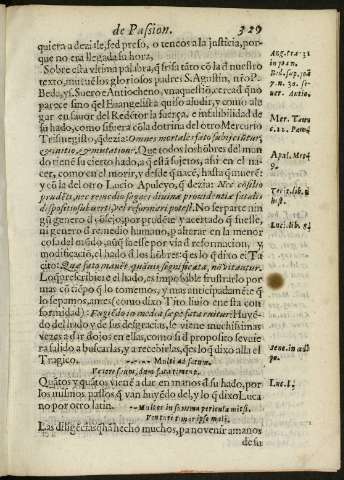 de Passion. 329
quiera a dezirle, sed preso, o teneos a la justicia, por-
que no era llegada su hora,
Sobre esta vltima palabra, q̃ frisa tãto cõ la d̃ nuestro
texto, mueuẽ los gloriosos padres S. Agustin, nr̃o P.
Beda, y S. Seuero Antiocheno, vna questiõ, cerca d̃ q̃ no
parece sino q̃ el Euangelista quiso aludir, y como ale
gar en fauor del Redẽtor la fuerça, e infalibilidad de
su hado, como si fuera cõ la dotrina del otro Mercurio
Trismegisto, q̃ dezia:
genitio, & mutatione. Que todos los hõbres del mun
do tienẽ su cierto hado, a q̃ està sujetos, asi en el na-
cer, como en el morir, y desde q̃ nacẽ, hasta q̃ muerẽ:
y cõ la del otro Lucio Apuleyo, q̃ dezia: Nec cõsilio
prudẽti, nec remedio sagaci diuinæ prouidentiæ fatalis
dispositio subuerti, vel reformari potest. No se parte nin
gũ genero d̃ cõsejo, por prudẽte y acertado q̃ fuesse,
ni genero d̃ remedio humano, p̃ alterar en la menor
cola del mũdo, aũq̃ fuesse por via d̃ reformacion, y
modificaciõ, el hado d̃ los hõbres: q̃ es lo q̃ dixo e Ta
cito: Quæ fato manẽt, quãuis significata, nõ vitantur.
es impossible frustrarlo por
mas cõ tiẽpo q̃ lo tomemos, y mas anticipadamẽte q̃
lo sepamos, antes (como dixo Tito liuio en esta con
formidad): Fugiẽdo in media sæpe fata ruitur: Huyẽ-
do del hado y de sus desgracias, se viene muchissimas
vezes a dar de ojos en ellas, como si d̃ proposito se vuie
ra salido a buscarlas, y a recebirlas, q̃ es lo q̃ dixo alla el
Tragico. Multi ad fatum.
Venere suum, dum fata timent.
Quãtos y quãtos vienẽ a dar en manos d̃ su hado, por
los mismos passos q̃ van huyẽdo del, y lo q̃ dixo Luca
no por otro latin. Multos in summa pericula misit.
Venturi timor ipse mali.
Las diligẽcias q̃ hã hecho muchos, pa no venir a manos
de su
Aug. tra. 31
in joan.
Bed. sup. joã
7. n. 30. se-
uer. Antio.
Apal. Met.
9.
hist.
Luci. lib. 8.
sene. in
Luc. l.